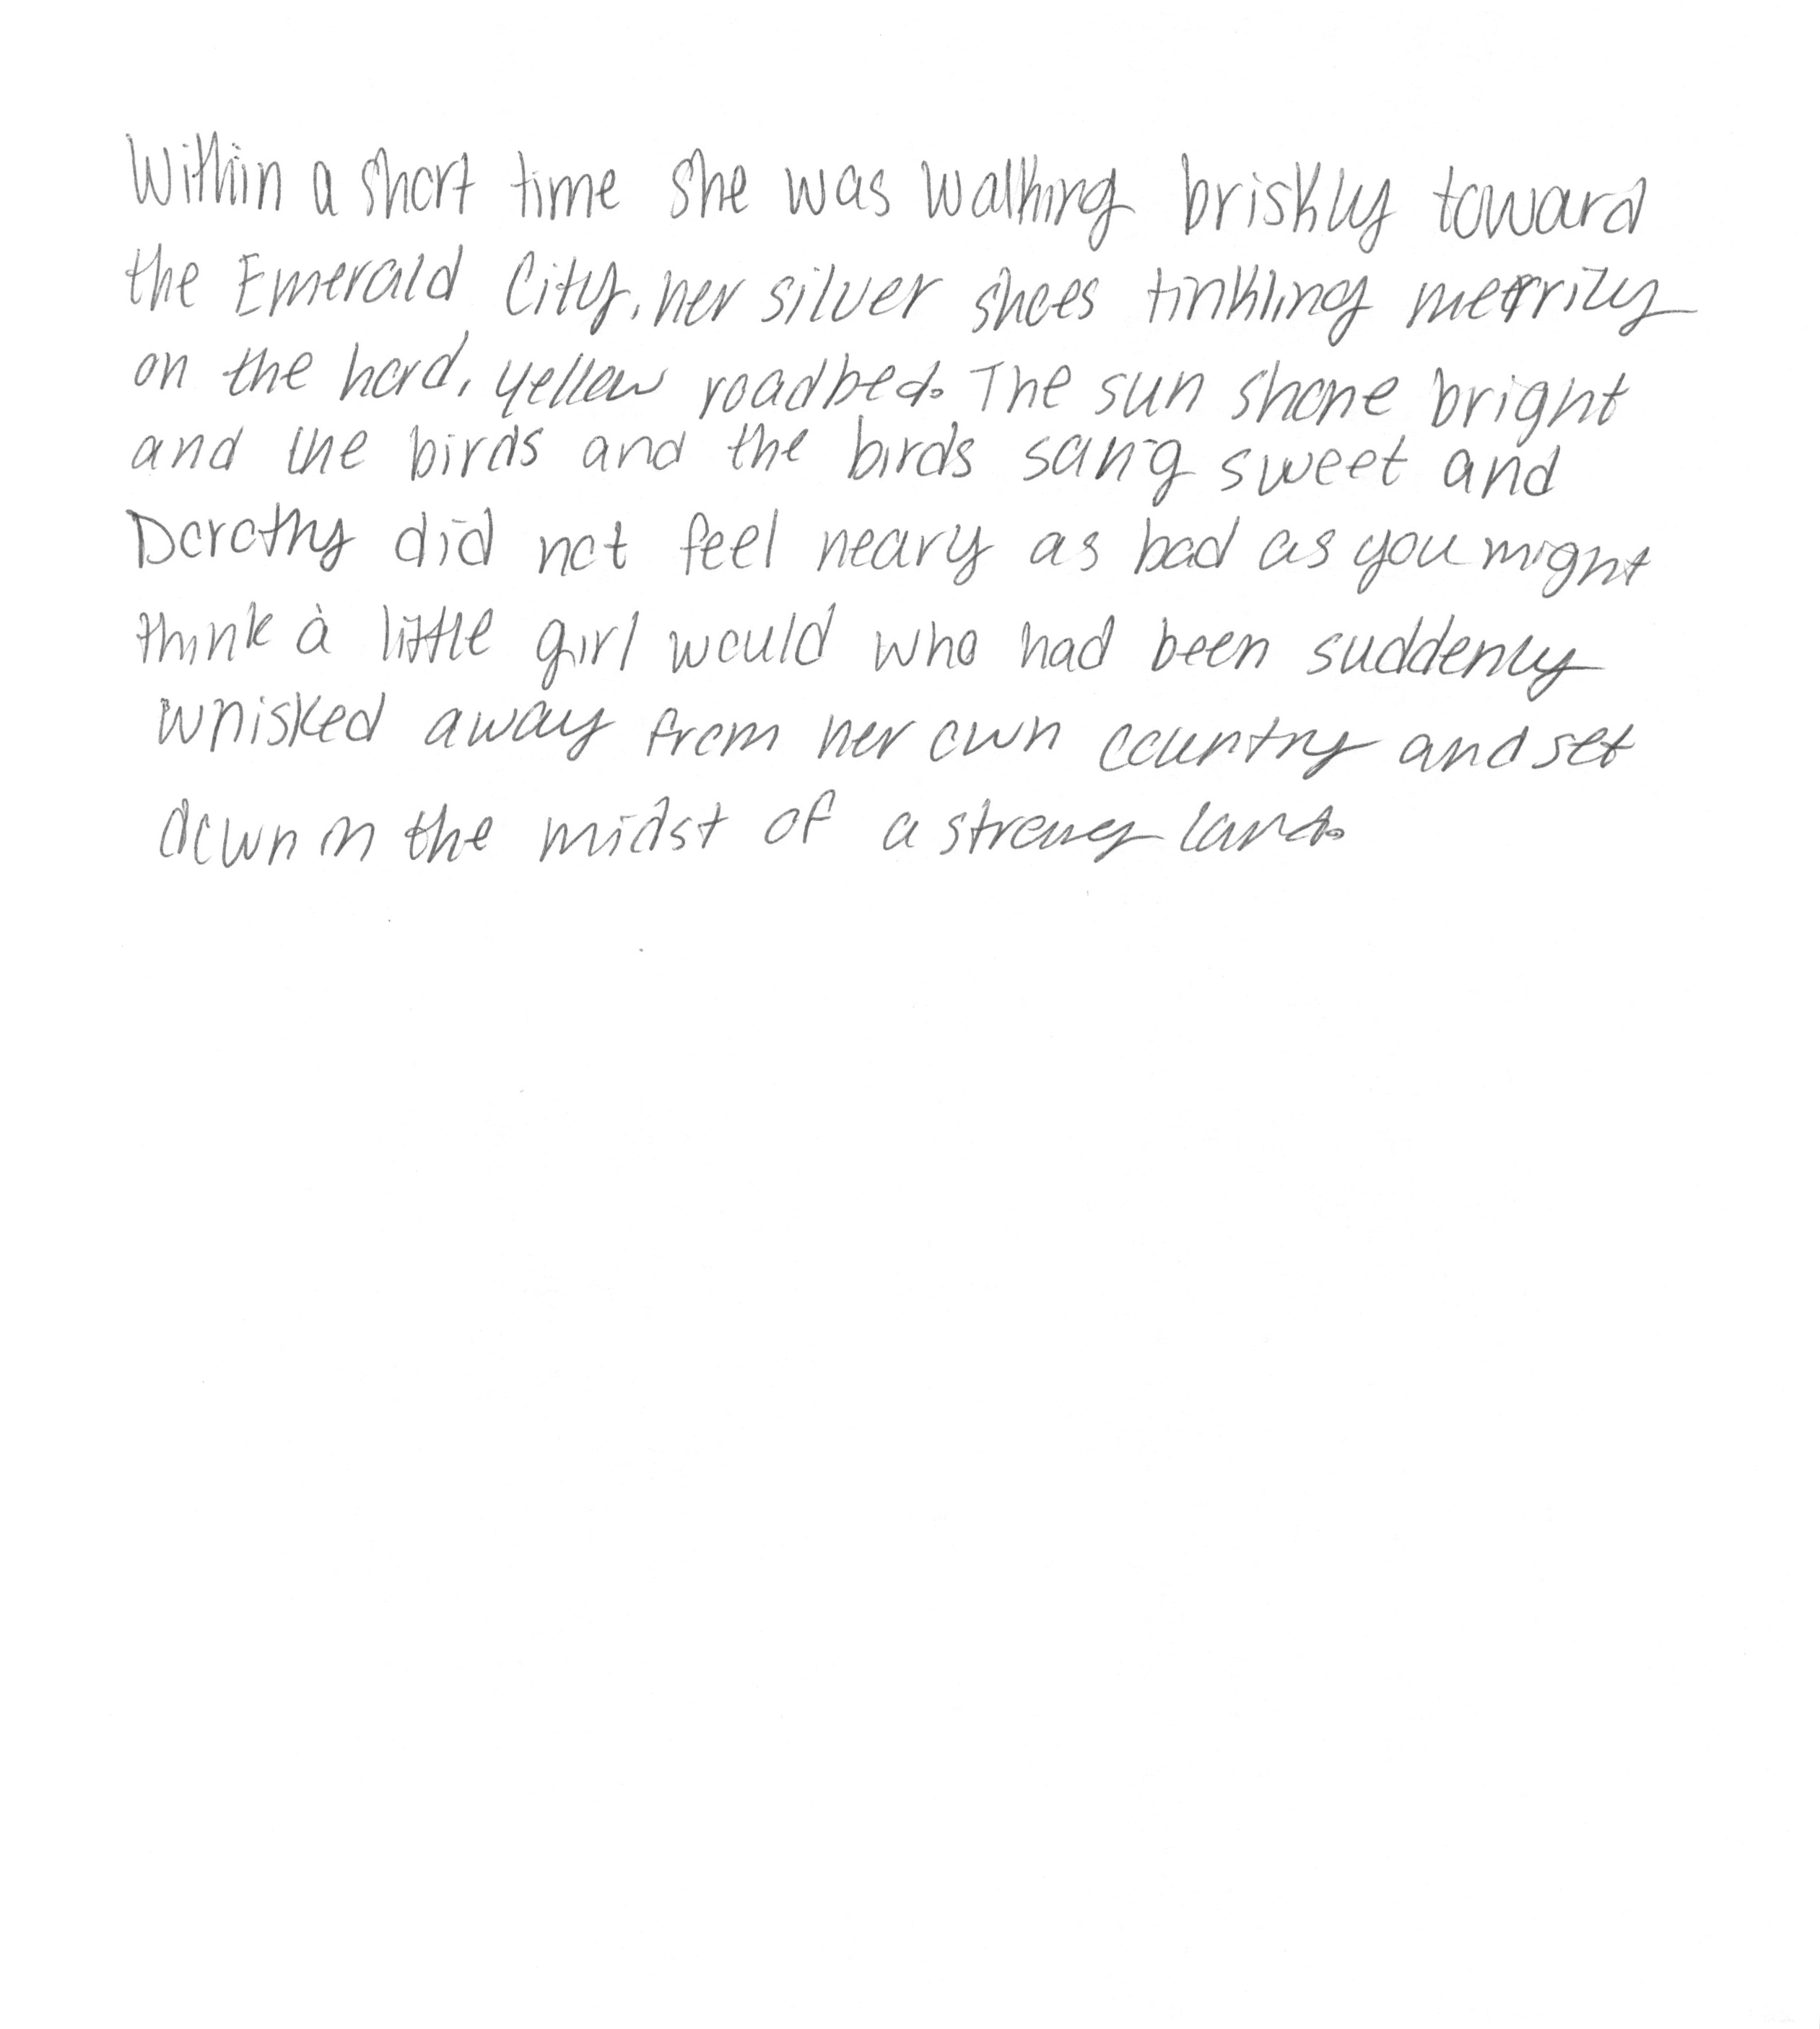 Within a short time she was walking briskly toward
the Emerald City, her silver shoes tinkling merrily
on the hard, yellow roadbed. The sun shone bright
and the birds and the birds sang sweet and
Dorothy did not feel neary as bad as you might
think a little girl would who had been suddenly
whisked away from her own country and set
down in the midst of a land.